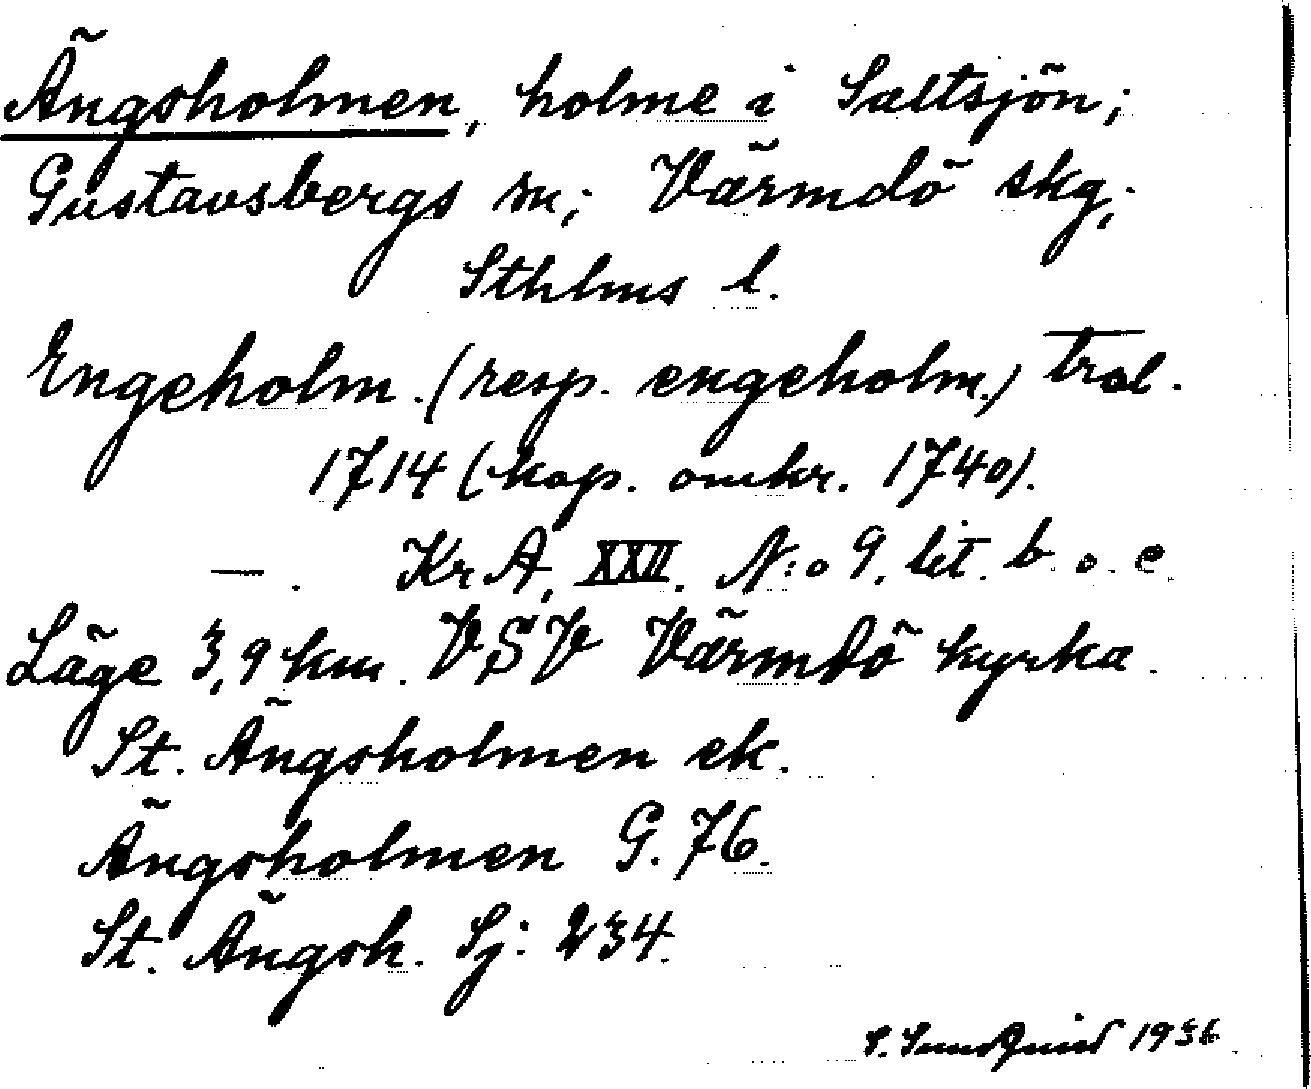 Ängsholmen, holme i Saltsjön;
Gustavsbergs sn; Värmdö skg;
Sthlms l.
Engeholm. (resp. engeholm.) tral.
1714 (kop. omkr. 1740).
— . KrA, XXII. N:o 9. lit. b. o. c.
Läge 3,9 km. VSV Värmdö kyrka.
St. Ängsholmen ek.
Ängsholmen G. 76.
St. Ängsh. Sj: 234.
S. Sundquist 1936